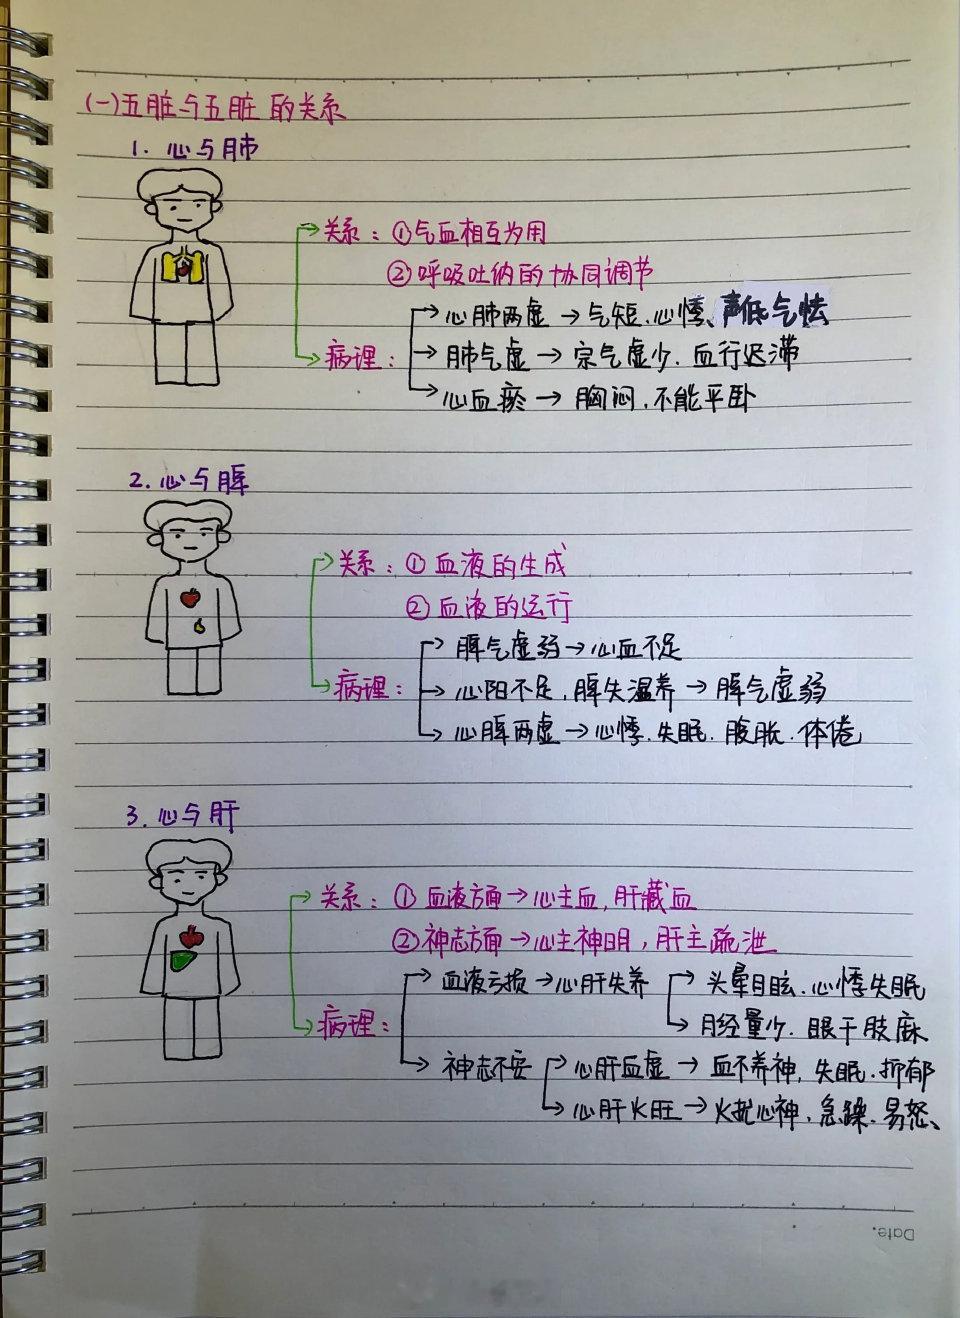 (一)五脏与五脏的关系
1. 心与肺
关系：①气血相互为用
②呼吸吐纳的协同调节
心肺两虚→气短、心悸、声低气怯
病理：
肺气虚→宗气虚少、血行迟滞
心血瘀→胸闷、不能平卧
2. 心与脾
关系：①血液的生成
②血液的运行
脾气虚弱→心血不足
病理：
心阳不足，脾失温养→脾气虚弱
心脾两虚→心悸、失眠、腹胀、体倦
3. 心与肝
关系：①血液方面→心主血，肝藏血
②神志方面→心主神明，肝主疏泄
血液亏损→心肝失养
头晕目眩、心悸失眠
病理：
月经量少、眼干肢麻
神志不安
心肝血虚→血不养神，失眠、抑郁
心肝火旺→火扰心神、急躁、易怒、
Date.